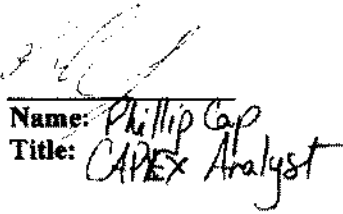 Name: Phillip Cap
Title: CAPEX Analyst